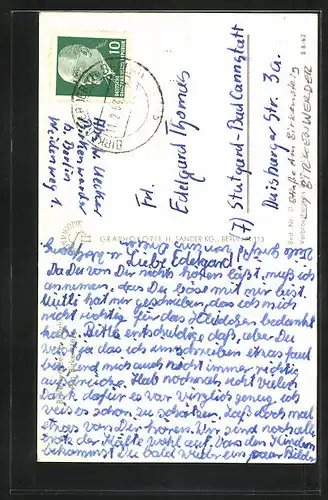 DEUTSCHE
DEMOKRATISCHE REPUBLIK
10
BIRKENWERDER
11.2.63
Birkenwerder
b. Berlin
Weidenweg 1
Frl.
Edelgard Thomas
(7) Stuttgart-Bad Cannstatt
Duisburger Str. 3a.
BIRKENWERDER
GRAPHOKOPIE H. SANDER KG., BERLIN
Liebe Edelgard!
Da Du von Dir nichts hören läßt, muß ich
annemen, das Du böse mit mir bist.
Mutti hat mir geschrieben, das ich mich
nicht richtig für das bedankt
habe. Bitte entschuldige daß, aber Du
weist ja das ich im schreiben etwas faul
bin und mich auch nicht immer richtig
ausdrücke. Hab nochmals recht vielen
Dank dafür es war wirklich genug ich
weis es schon zu schätzen. Laß doch mal
etwas von Dir hören. Wir sind noch alle
trotz der Kälte wohl auf. Von den Kindern
bekommst Du bald wieder ein paar Bilder